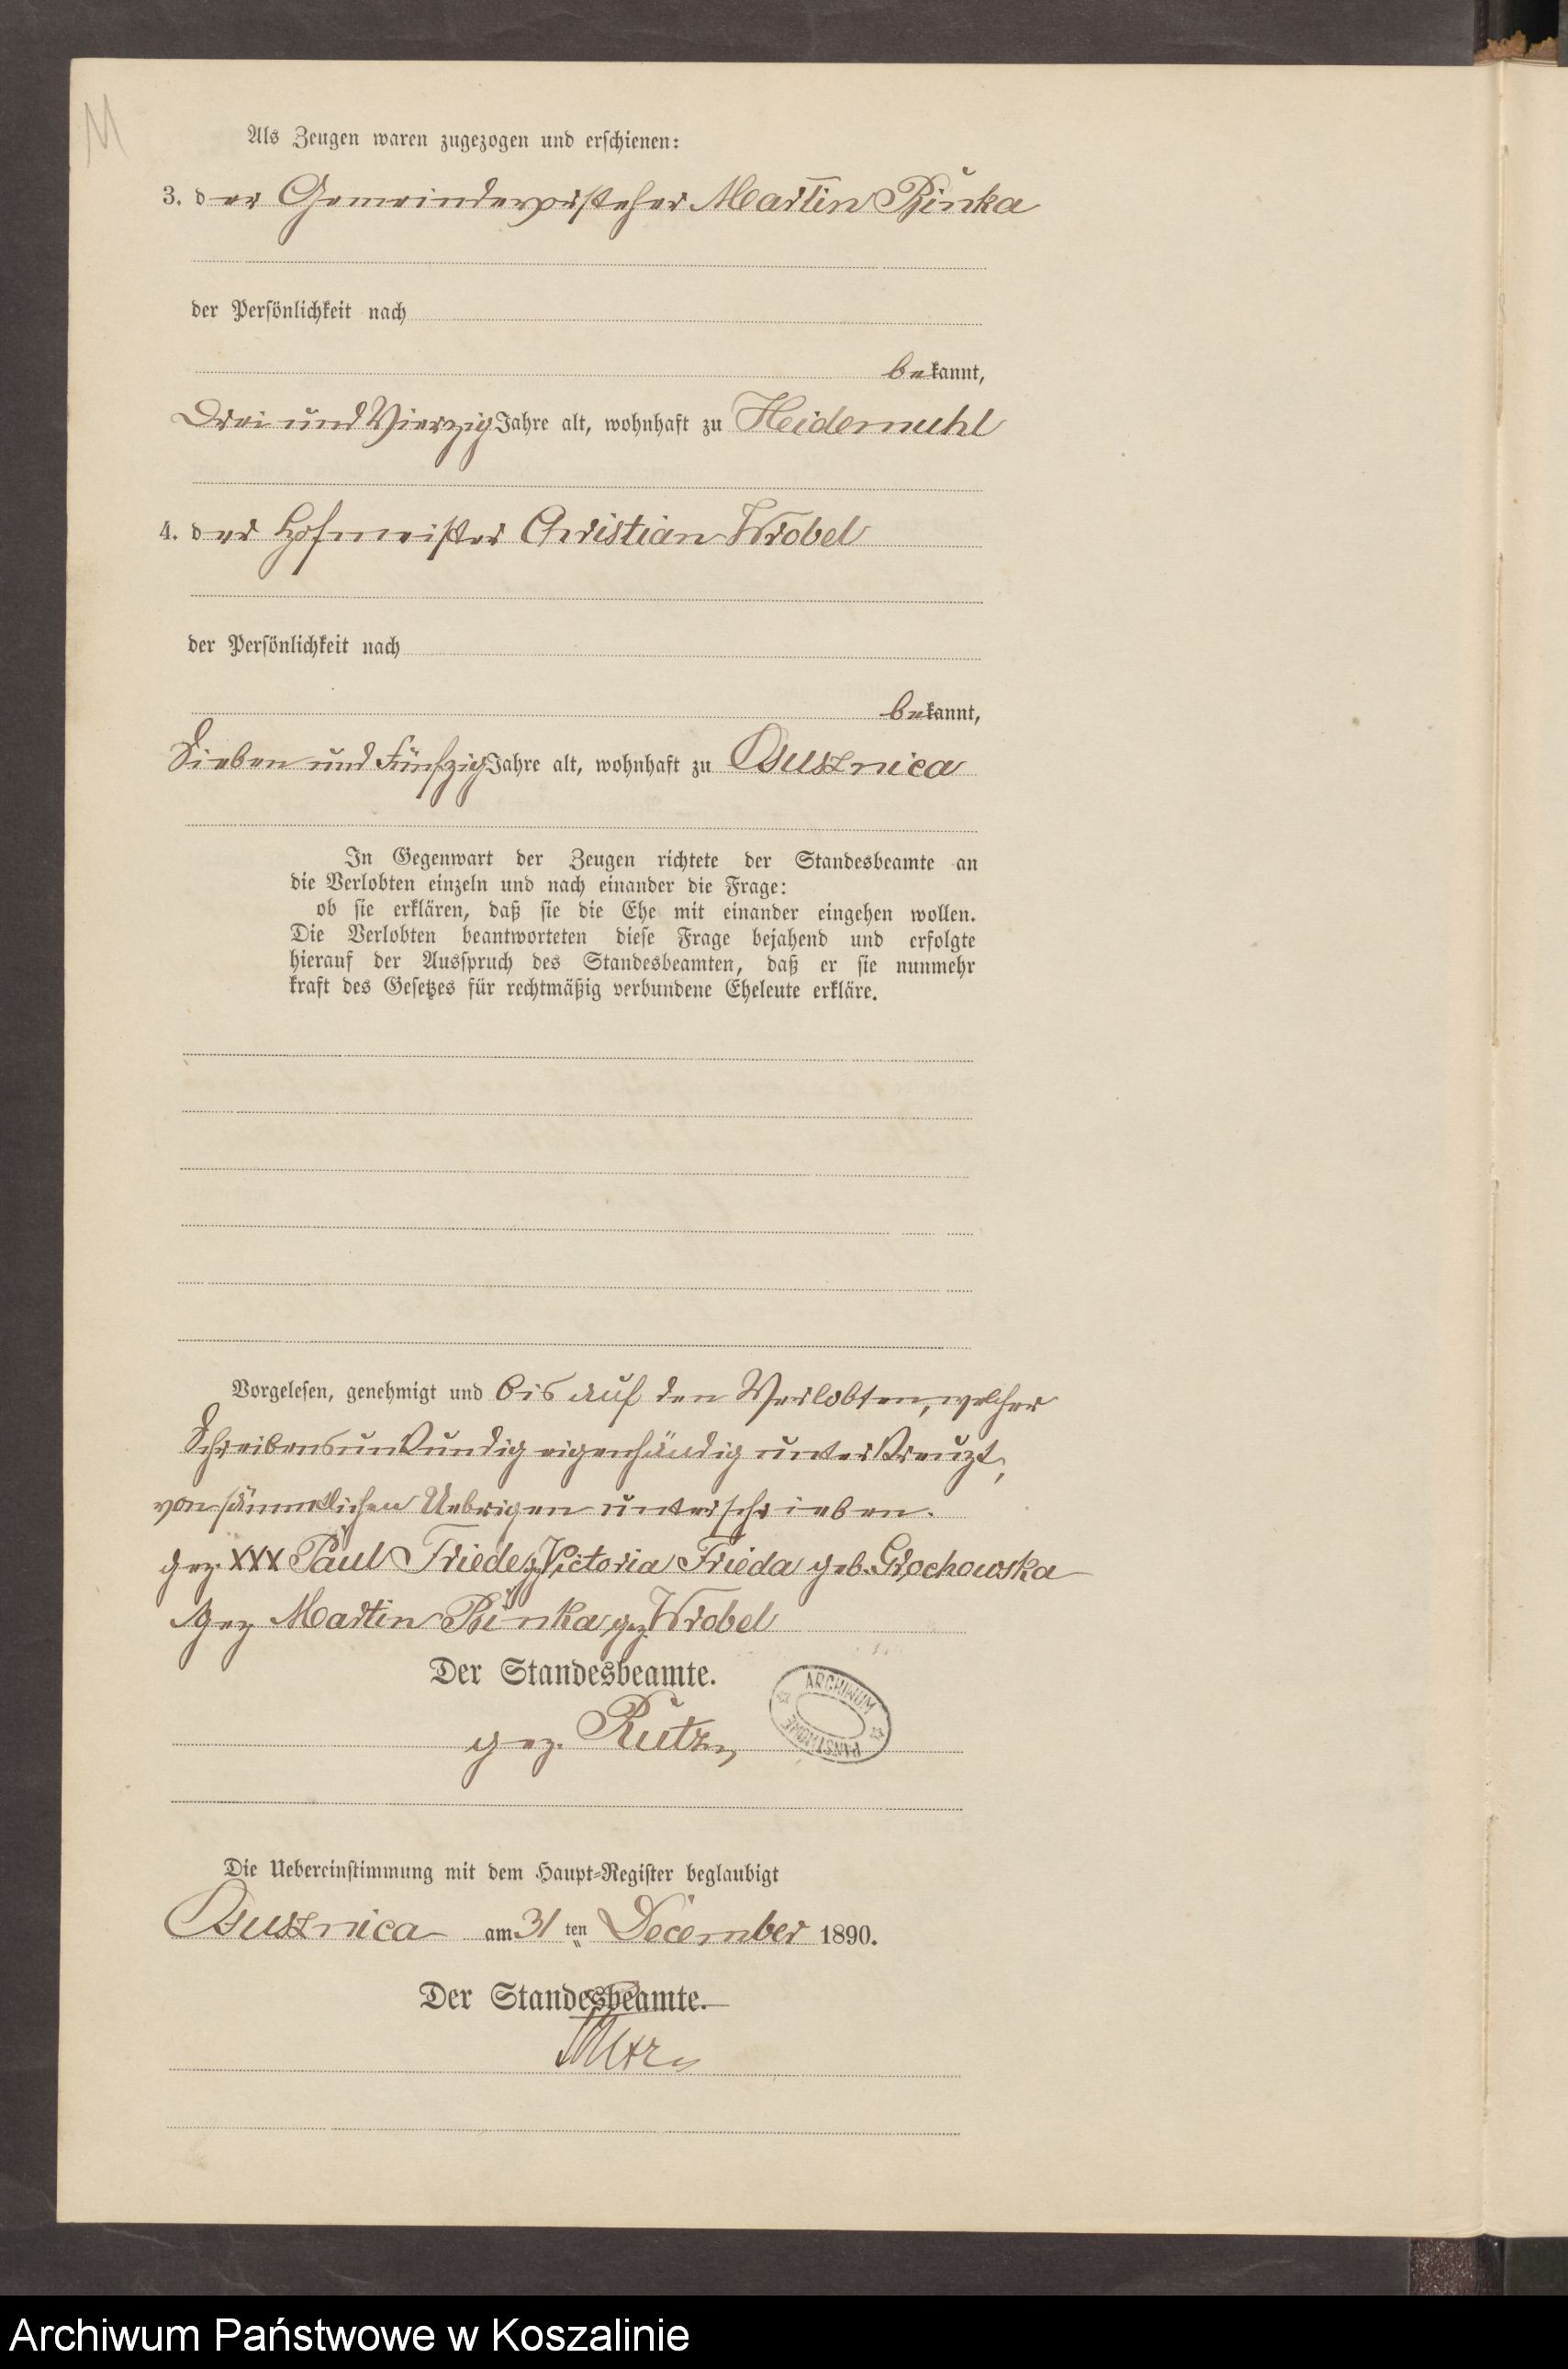 M
Als Zeugen waren zugezogen und erschienen:
3. der Gemeindevorsteher Martin Rŭnka
der Persönlichkeit nach
bekannt,
Drei und Vierzig Jahre alt, wohnhaft zu Heidemuhl
4. der Hofmeister Christian Wrobel
der Persönlichkeit nach
bekannt,
Sieben und Fünfzig Jahre alt, wohnhaft zu Osusznica
In Gegenwart der Zeugen richtete der Standesbeamte an
die Verlobten einzeln und nach einander die Frage:
ob sie erklären, daß sie die Ehe mit einander eingehen wollen.
Die Verlobten beantworteten diese Frage bejahend und erfolgte
hierauf der Ausspruch des Standesbeamten, daß er sie nunmehr
kraft des Gesetzes für rechtmäßig verbundene Eheleute erkläre.
Vorgelesen, genehmigt und bis auf den Verlobten, welcher
Schreibensunkundig eigenhändig unterkreuzt,
von sämmtlichen Uebrigen unterschrieben.
gez. XXX Paul Friede gz Victoria Frieda geb. Grochowska
gez Martin Rŭnka gez. Wrobel
Der Standesbeamte.
gez. Rutz
ARCHIWUM PAŃSTWOWE
Die Uebereinstimmung mit dem Haupt-Register beglaubigt
Osusznica am 31 ten December 1890.
Der Standesbeamte.
Rutz
Archiwum Państwowe w Koszalinie